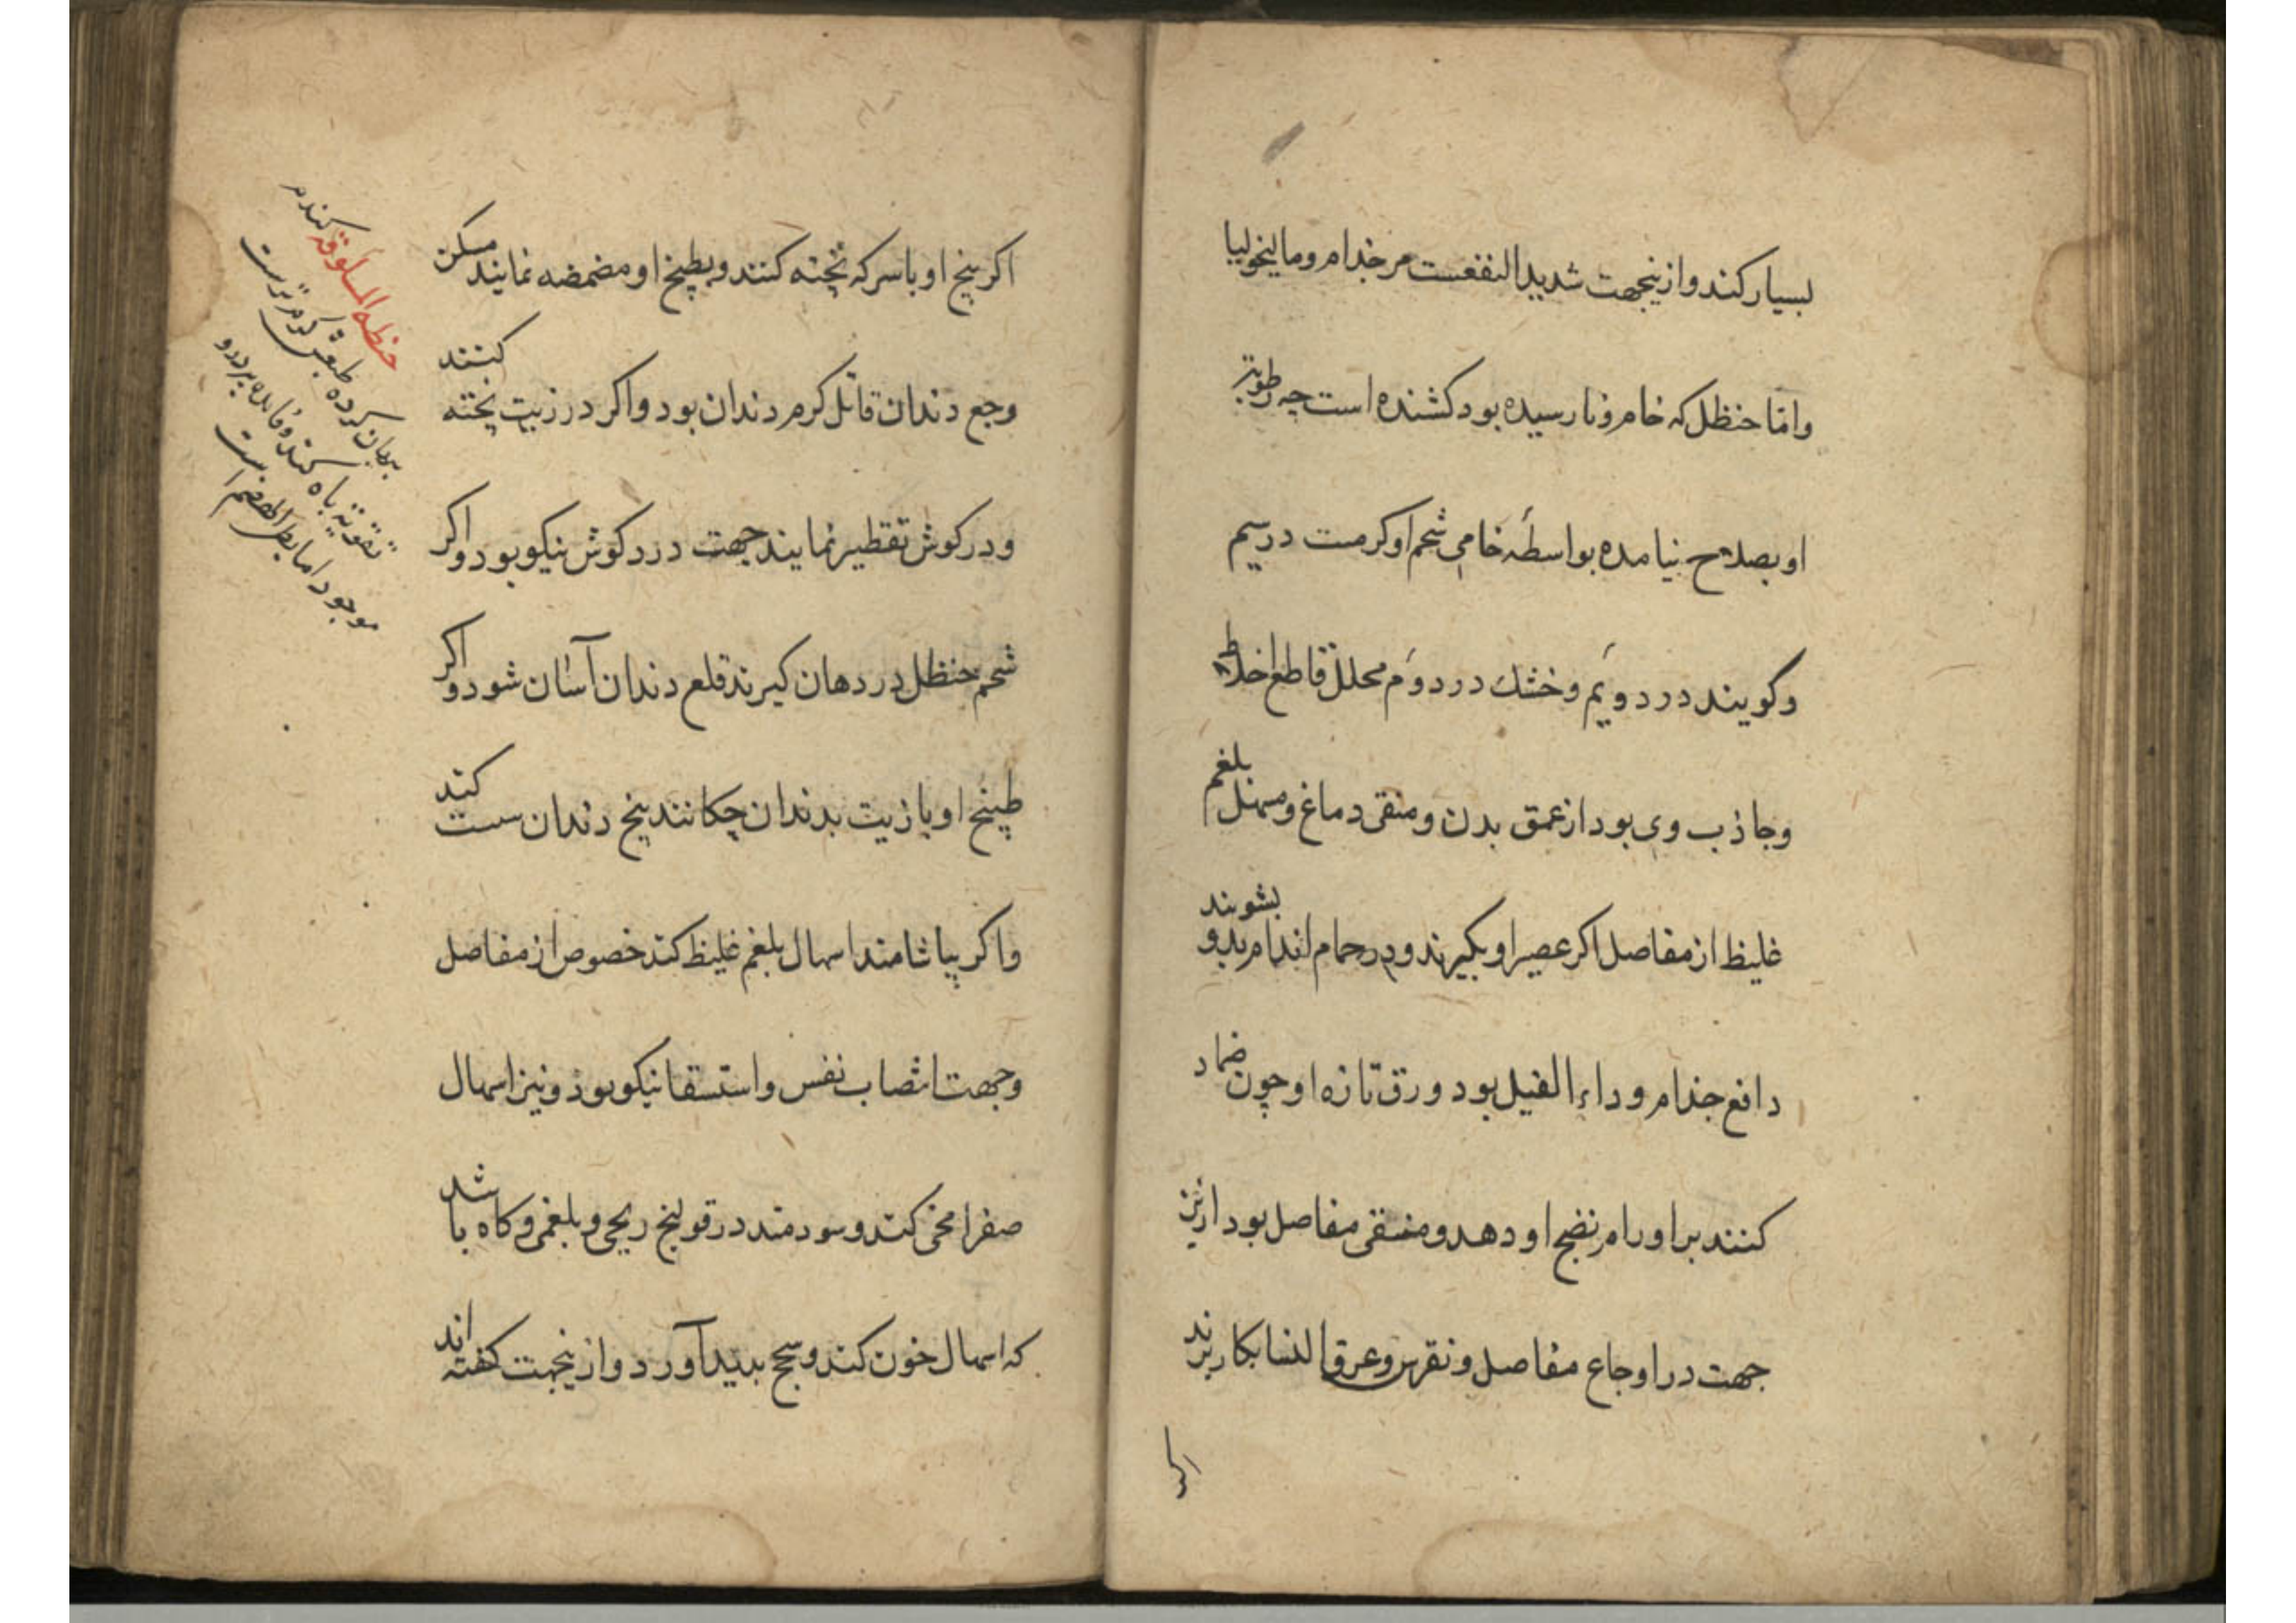 بسیار کند و ازینجهت شدید النفعست مر جذام و مالیخولیا
و امّا حنظل که خام و نارسیده بود کشنده است چه رطوبت
او بصلاح نیامده بواسطهٔ خامی شحم او کرمست در سیم
و کویند در دویم و خشك در دوم محلل قاطع اخلاط
و جاذب وی بود از عمق بدن و منقی دماغ و مسهل بلغم
غلیظ از مفاصل اکر عصیر او بکیرند و در حمام اندام بدو بشویند
دافع جذام و داء الفیل بود ورق تازه او چون ضماد
کنند بر اورام نضج او دهد و منقی مفاصل بود ازین
جهت در اوجاع مفاصل و نقرس و عرق النسا بکار برند
اکر
اکر بیخ او با سرکه پخته کنند و بطبیخ او مضمضه نمایند مسکن
وجع دندان قاتل کرم دندان بود و اکر در زیت پخته کنند
و در کوش تقطیر نمایند جهت درد کوش نیکو بود و اکر
شحم حنظل در دهان کیرند قلع دندان آسان شود و اکر
طبیخ او با زیت بدندان چکانند بیخ دندان سست کند
و اکر بیاشامند اسهال بلغم غلیظ کند خصوص از مفاصل
و جهت انتصاب نفس و استسقا نیکو بود و نیز اسهال
صفرا مخی کند و سودمند در قولنج ریحی و بلغمی و کاه باشد
که اسهال خون کند و سحج بدید آورد و ازینجهت کفته اند
حنطه المسلوقه کندم
بریان کرده طبعش کرم ترست
تقویة باه کند و فایده بردو
موجود اما بطی الهضم است